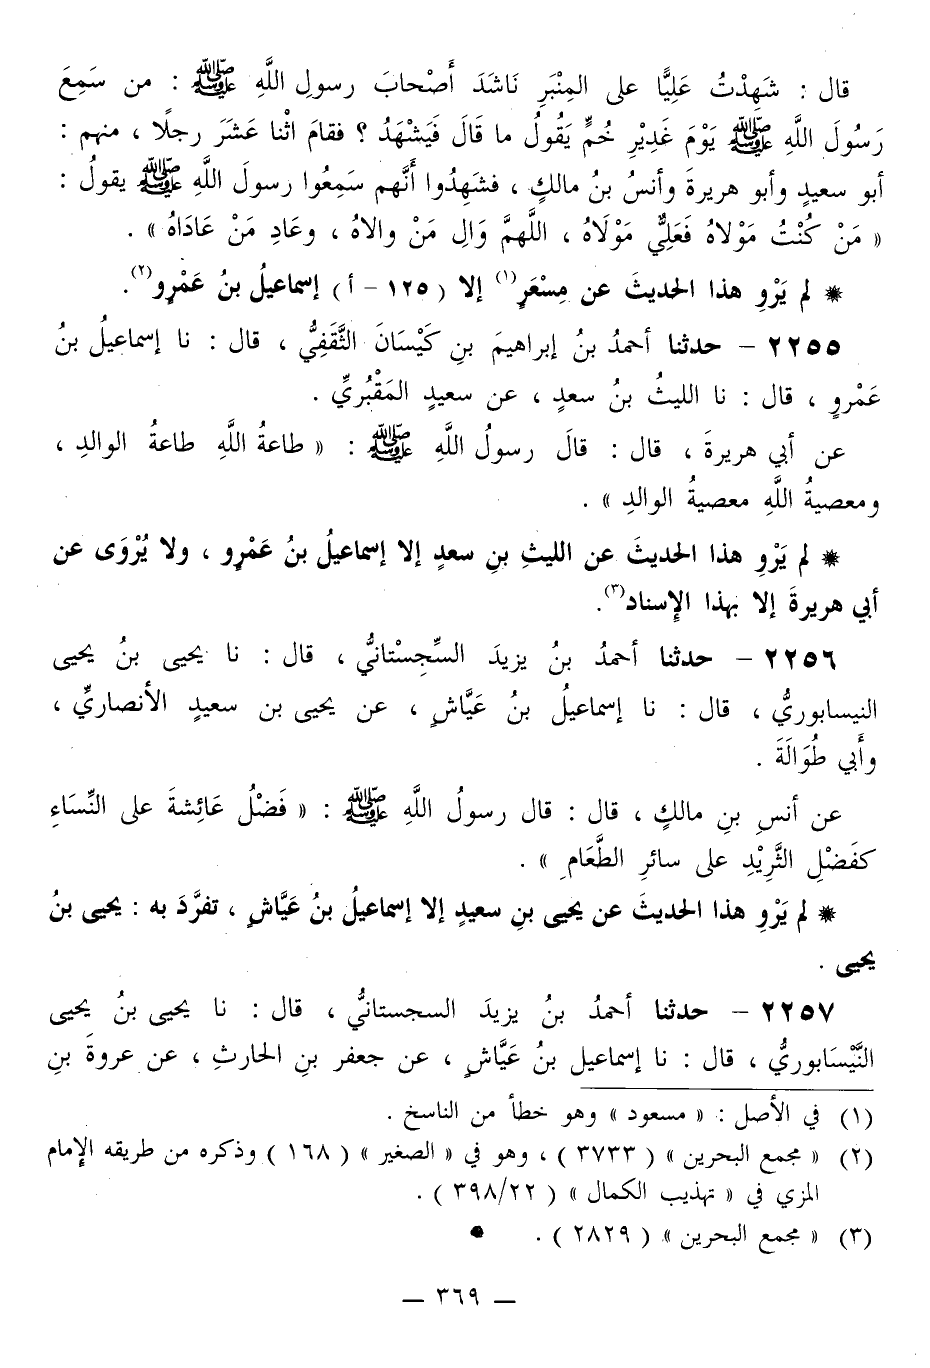 قال : شَهِدْتُ عَلِيًّا على المِنْبَرِ نَاشَدَ أَصْحابَ رسولِ اللَّهِ ﷺ : من سَمِعَ
رَسُولَ اللَّهِ ﷺ يَوْمَ غَدِيْرِ خُمٍّ يَقُولُ ما قَالَ فَيَشْهَدُ ؟ فقامَ اثْنا عَشَرَ رجلًا ، منهم :
أبو سعيدٍ وأبو هريرةَ وأنسُ بنُ مالكٍ ، فشَهِدُوا أَنَّهم سَمِعُوا رسولَ اللَّهِ ﷺ يقولُ :
« مَنْ كُنْتُ مَوْلاهُ فَعَلِيٌّ مَوْلَاهُ ، اللَّهمَّ وَالِ مَنْ والاهُ ، وعَادِ مَنْ عَادَاهُ » .
* لم يَرْوِ هذا الحديثَ عن مِسْعَرٍ(١) إلا ( ١٢٥ - أ ) إسماعيلُ بنُ عَمْرٍو(٢).
٢٢٥٥ - حدثنا أحمدُ بنُ إبراهيمَ بنِ كَيْسَانَ الثَّقَفِيُّ ، قال : نا إسماعيلُ بنُ
عَمْرٍو ، قال : نا الليثُ بنُ سعدٍ ، عن سعيدٍ المَقْبُرِيِّ .
عن أبي هريرةَ ، قال : قالَ رسولُ اللَّهِ ﷺ : « طاعةُ اللَّهِ طاعةُ الوالدِ ،
ومعصيةُ اللَّهِ معصيةُ الوالدِ » .
* لم يَرْوِ هذا الحديثَ عن الليثِ بنِ سعدٍ إلا إسماعيلُ بنُ عَمْرٍو ، ولا يُرْوَى عن
أبي هريرةَ إلا بهذا الإِسناد(٣).
٢٢٥٦ - حدثنا أحمدُ بنُ يزيدَ السِّجِسْتانيُّ ، قال : نا يحيى بنُ يحيى
النيسابوريُّ ، قال : نا إسماعيلُ بنُ عَيَّاشٍ ، عن يحيى بن سعيدٍ الأنصاريِّ ،
وأبي طُوَالَةَ .
عن أنسِ بنِ مالكٍ ، قال : قال رسولُ اللَّهِ ﷺ : « فَضْلُ عَائِشةَ على النِّسَاءِ
كفَضْلِ الثَّرِيْدِ على سائرِ الطَّعَامِ » .
* لم يَرْوِ هذا الحديثَ عن يحيى بنِ سعيدٍ إلا إسماعيلُ بنُ عَيَّاشٍ ، تفرَّدَ به : يحيى بنُ
يحيى .
٢٢٥٧ - حدثنا أحمدُ بنُ يزيدَ السجستانيُّ ، قال : نا يحيى بنُ يحيى
النَّيْسَابوريُّ ، قال : نا إسماعيل بنُ عَيَّاشٍ ، عن جعفر بنِ الحارثِ ، عن عروةَ بنِ
(١) في الأصل : « مسعود » وهو خطأ من الناسخ .
(٢) « مجمع البحرين » ( ٣٧٣٣ ) ، وهو في « الصغير » ( ١٦٨ ) وذكره من طريقه الإمام
المزي في « تهذيب الكمال » ( ٣٩٨/٢٢ ) .
(٣) « مجمع البحرين » ( ٢٨٢٩ ) .
— ٣٦٩ —